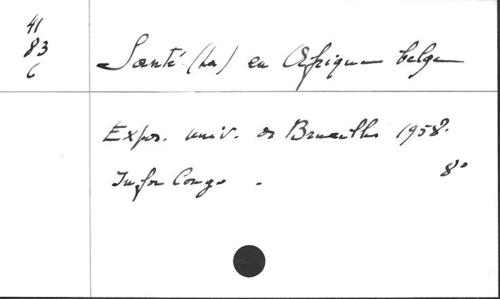 41
83
C
Santé (La) en Afrique belge
Expos. univ. de Bruxelles 1958.
Infor Congo . 8°